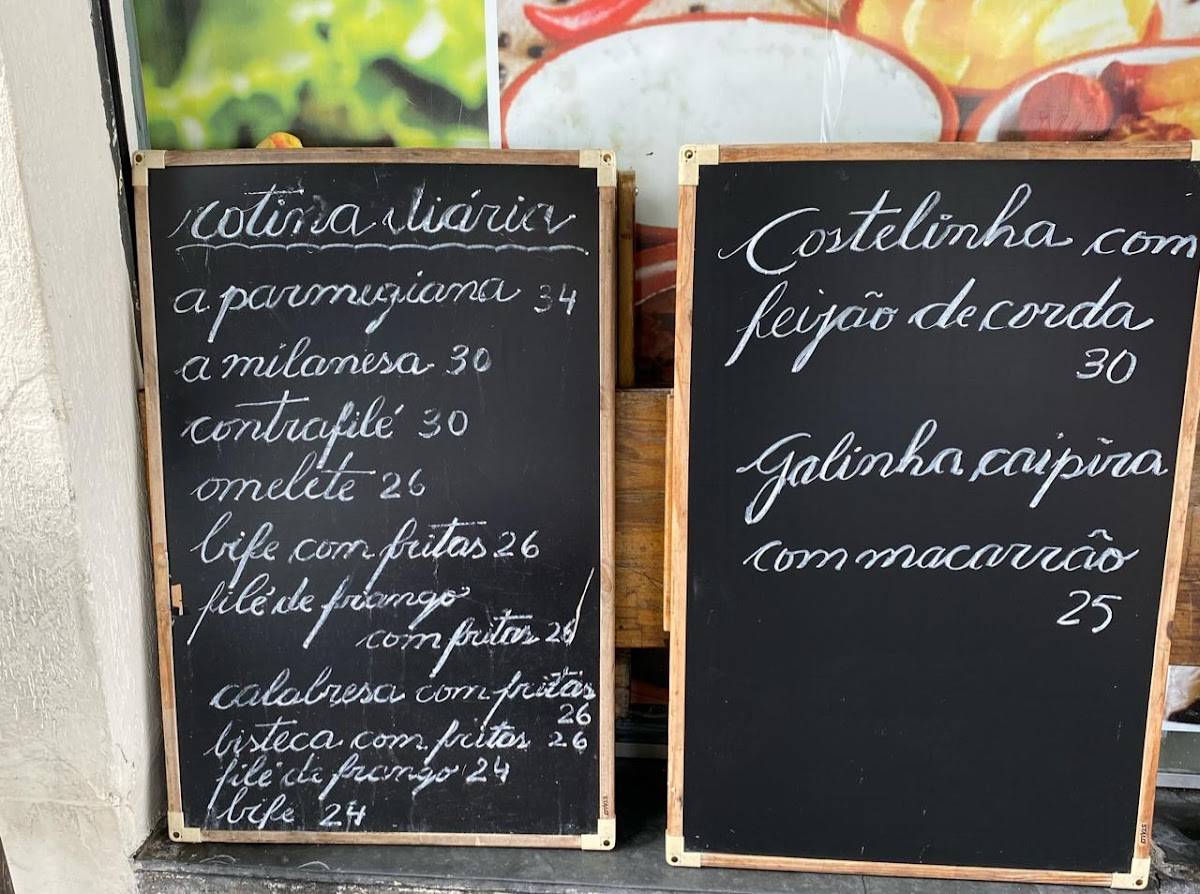 rotina diária
a parmegiana 34
a milanesa 30
contrafilé 30
omelete 26
bife com fritas 26
filé de frango
com fritas 26
calabresa com fritas
26
bisteca com fritas 26
filé de frango 24
bife 24
Costelinha com
feijão de corda
30
Galinha caipira
com macarrão
25